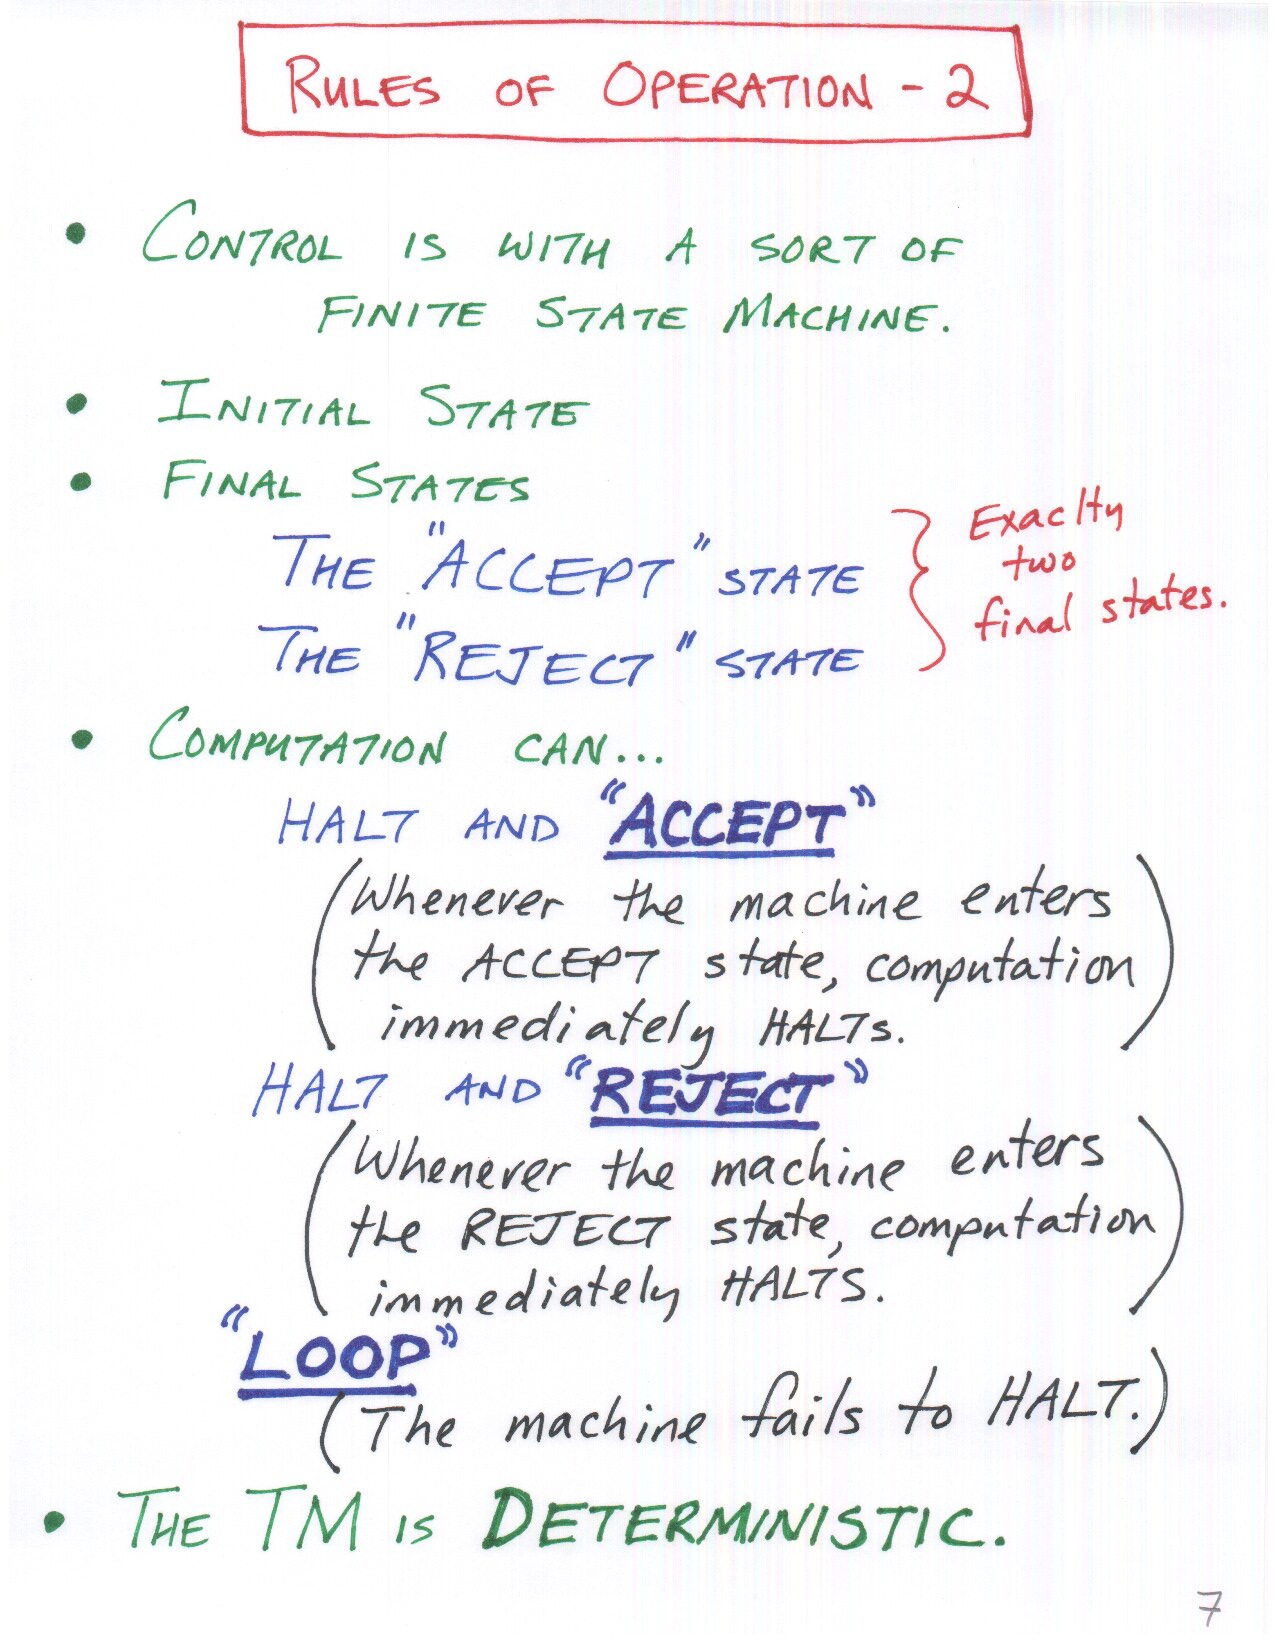 RULES OF OPERATION - 2
• CONTROL IS WITH A SORT OF
FINITE STATE MACHINE.
• INITIAL STATE
• FINAL STATES
THE "ACCEPT" STATE
THE "REJECT" STATE
Exaclty
two
final states.
• COMPUTATION CAN...
HALT AND "ACCEPT"
(Whenever the machine enters
the ACCEPT state, computation
immediately HALTs.)
HALT AND "REJECT"
(Whenever the machine enters
the REJECT state, computation
immediately HALTS.)
"LOOP"
(The machine fails to HALT.)
• THE TM IS DETERMINISTIC.
7